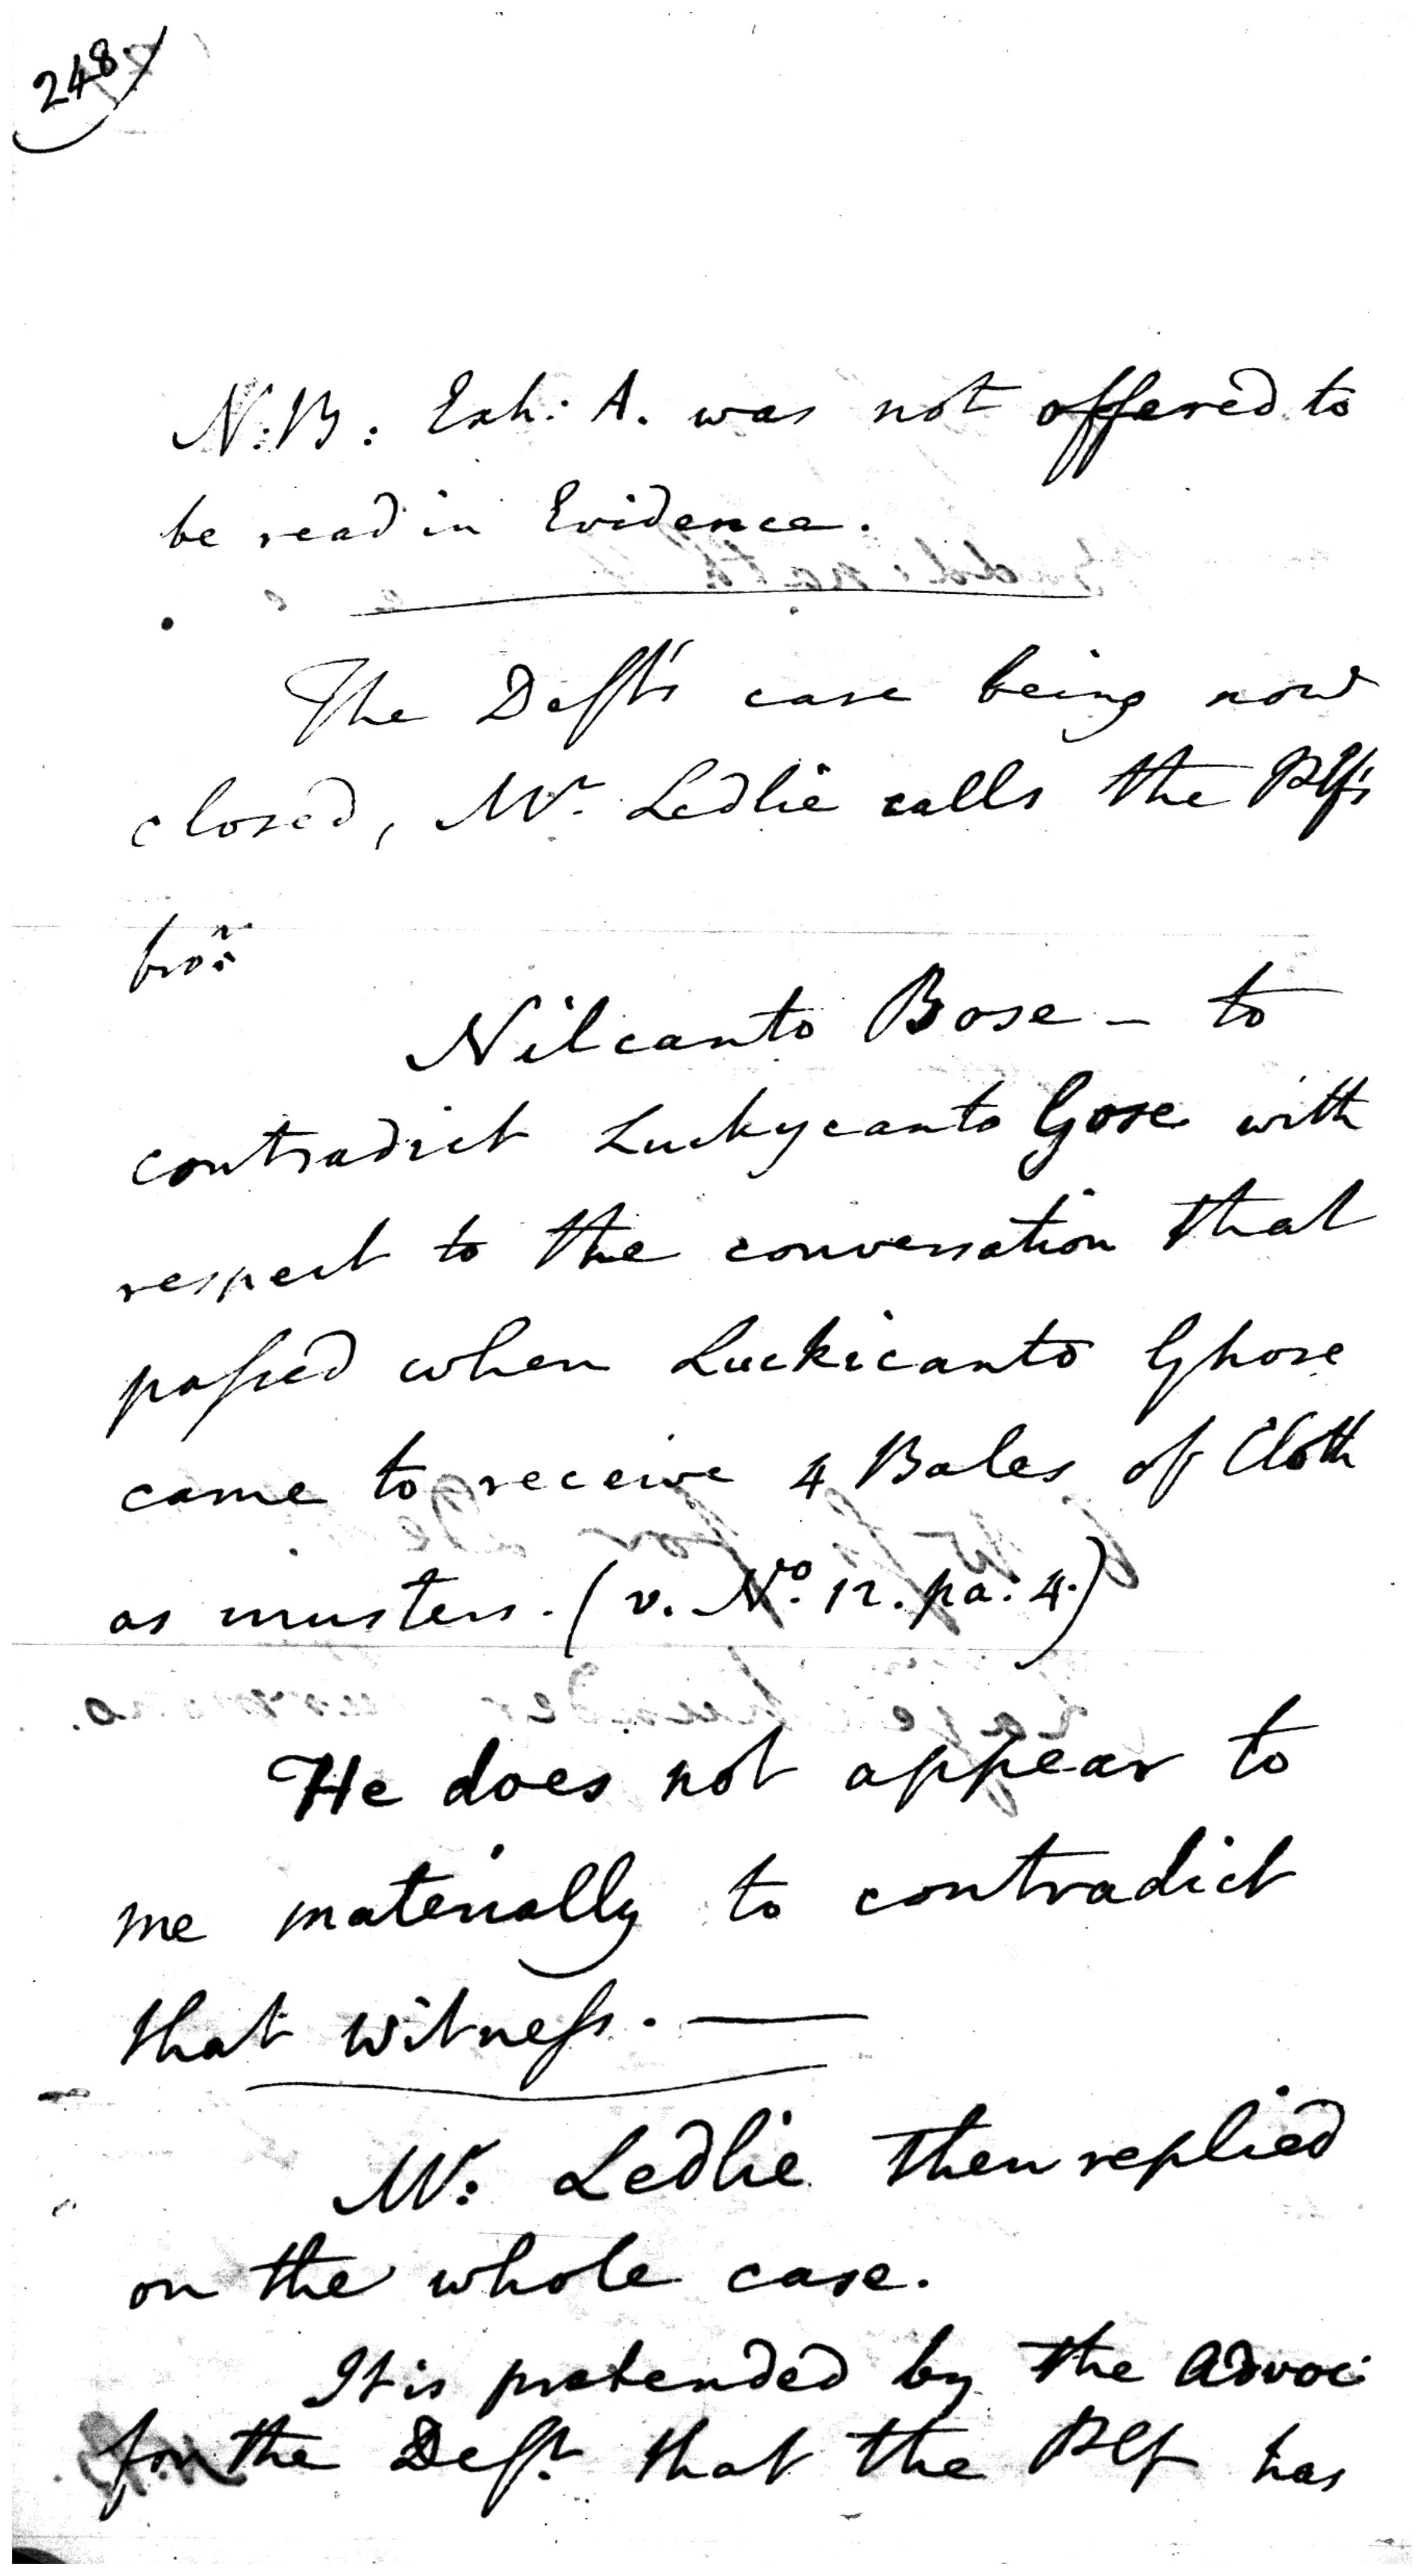 248.
N:B: Exh: A. was not offered to
be read in Evidence.
The Deft's case being now
closed, Mr. Ledlie calls the Plf's
bror:
Nilcanto Bose – to
contradict Luckycanto Gose with
respect to the conversation that
passed when Luckicanto Ghose
came to receive 4 Bales of Cloth
as musters. (v. No. 12. pa: 4.)
He does not appear to
me materially to contradict
that witness. —
Mr: Ledlie then replied
on the whole case.
It is pretended by the Advoc:
for the Deft. that the Plf has